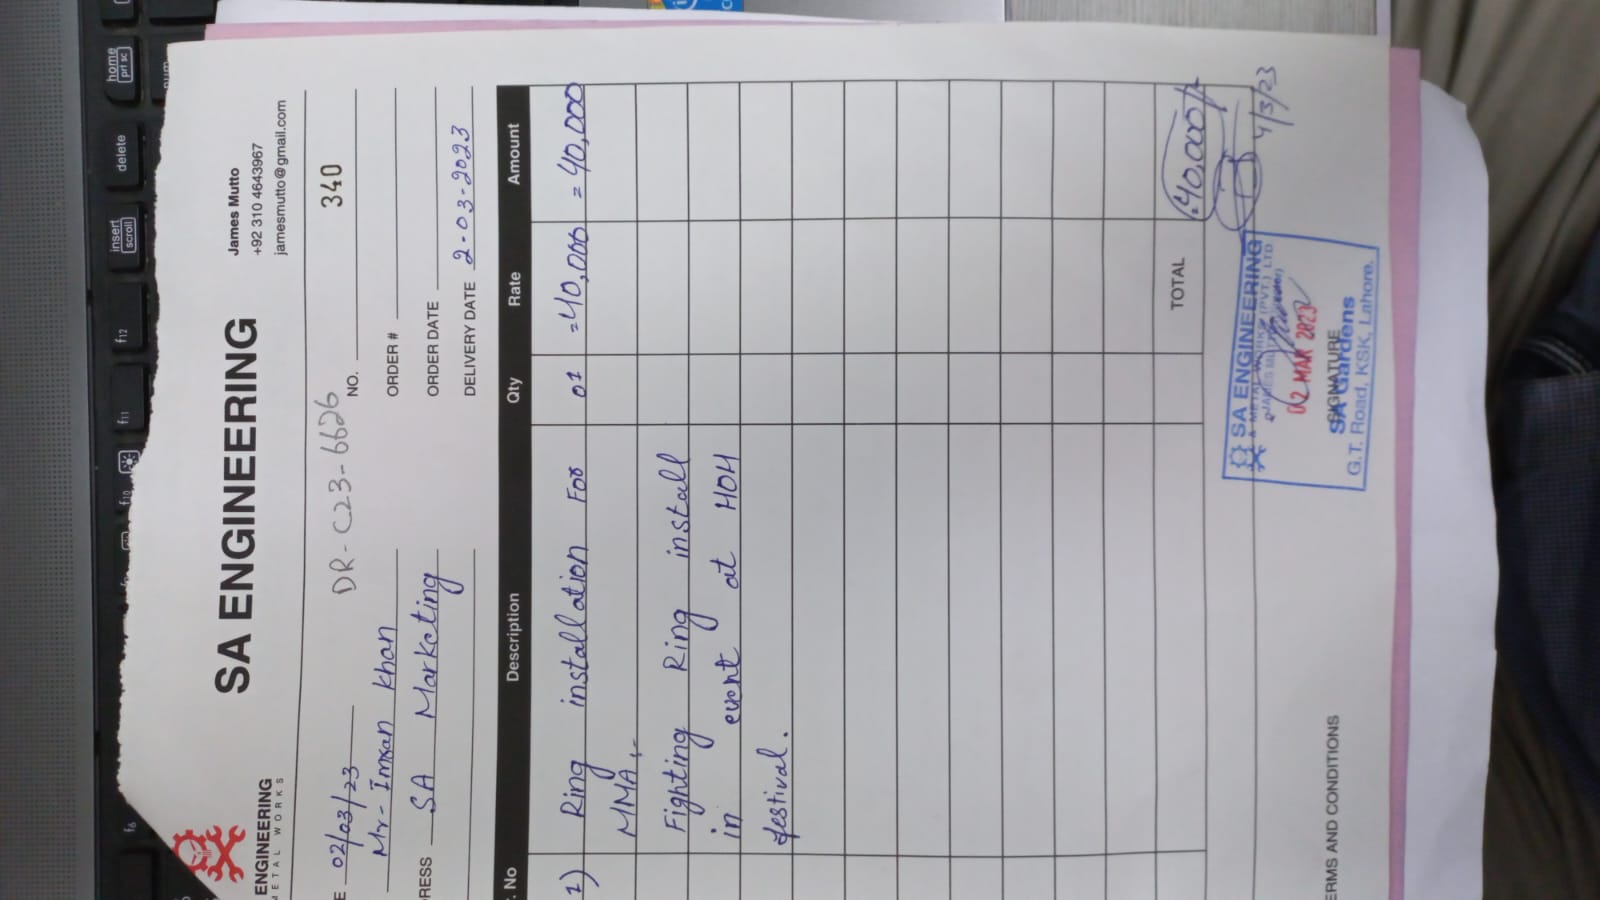 f6
f10
f11
f12
insert
scroll
delete
home
prt sc
ENGINEERING
METAL WORKS
SA ENGINEERING
James Mutto
+92 310 4643967
jamesmutto@gmail.com
E 02/03/23
DR-C23-6626
NO. 340
Mr- Imran Khan
ORDER #
RESS SA Marketing
ORDER DATE
DELIVERY DATE 2-03-2023
. No Description Qty Rate Amount
1) Ring installation For 01 =40,000 =40,000
MMA,-
Fighting Ring install
in event at HOH
festival.
TOTAL 40,000/-
4/3/23
SA ENGINEERING
& METAL WORKS (PVT.) LTD
02 MAR 2023
SIGNATURE
SA Gardens
G.T. Road, KSK, Lahore.
ERMS AND CONDITIONS